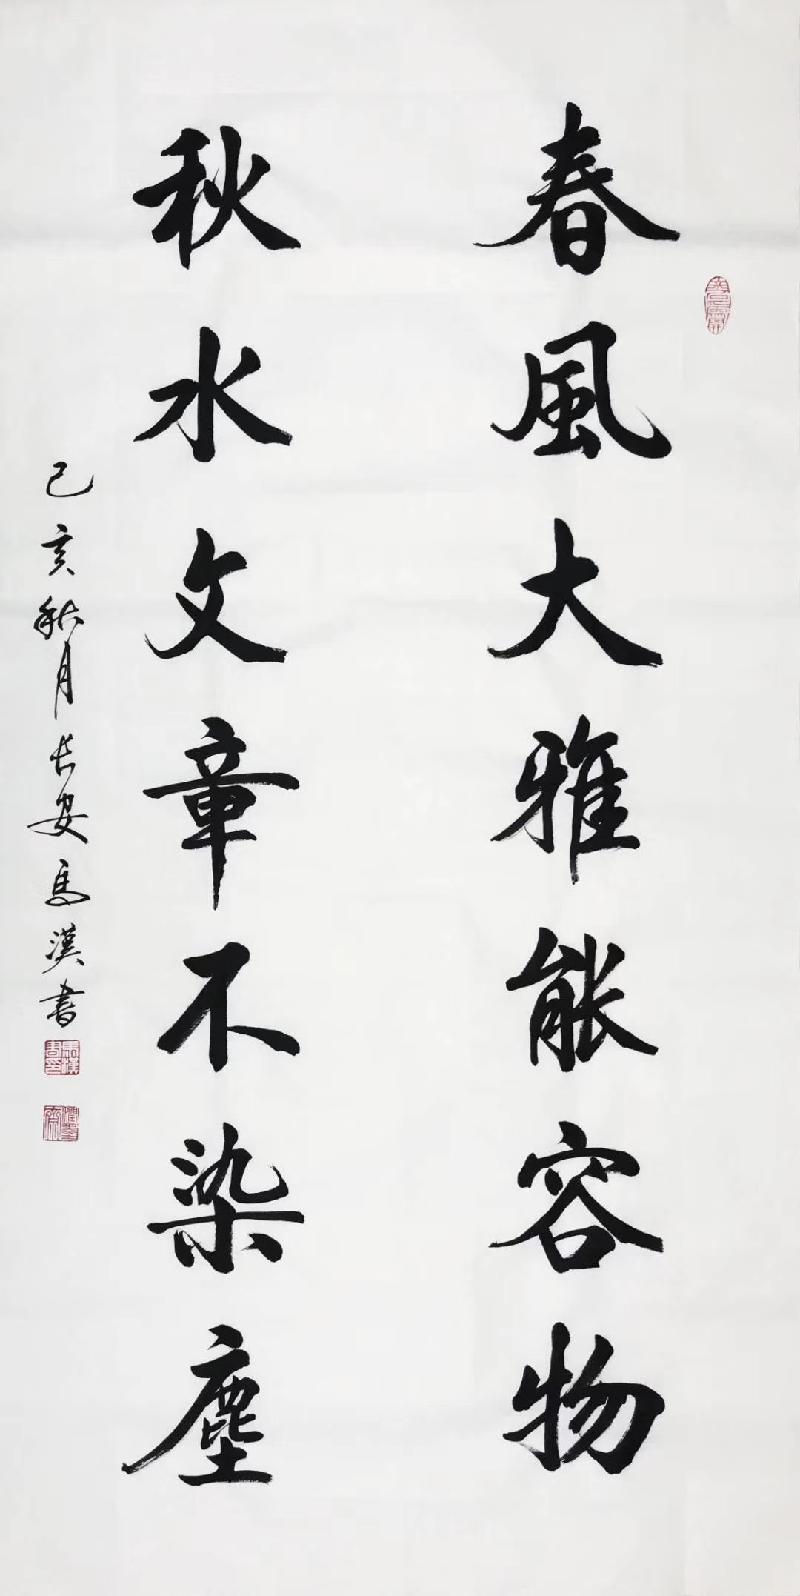 春風大雅能容物
秋水文章不染塵
己亥秋月长安馬漢書